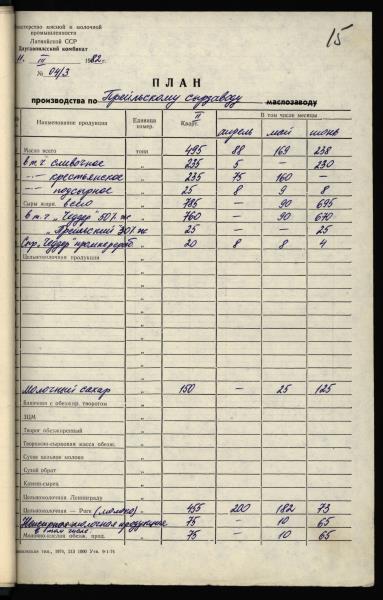 15
Министерство мясной и молочной
промышленности
Латвийской ССР
Даугавпилсский комбинат
11. III 1982 г.
№ 04/3
ПЛАН
производства по Прейльскому сырзаводу маслозаводу
Наименование продукции Единица измер. Кварт. II В том числе месяцы
апрель май июнь
Масло всего тонн 495 88 169 238
в т.ч сливочное „ 235 5 — 230
—"— крестьянское „ 235 75 160 —
—"— подсырное „ 25 8 9 8
Сыры жирн. всего „ 785 — 90 695
в т.ч „Чеддер" 50% ж „ 760 — 90 670
„Прейльский" 30% ж „ 25 — — 25
Сыр „Чеддер" промперераб „ 20 8 8 4
Цельномолочная продукция „
Молочный сахар „ 150 — 25 125
Блочения с обезжир. творогом „
ЗЦМ „
Творог обезжиренный „
Творожно-сырковая масса обезж. „
Сухое цельное молоко „
Сухой обрат „
Казеин-сырец „
Цельномолочная Ленинграду „
Цельномолочная — Риге (молоко) „ 455 200 182 73
Нежирная молочная продукция „ 75 — 10 65
в том числе:
Молочно-кислая обезж. прод. „ 75 — 10 65
тип., 1974, 213 1000 Утв. 9-1-74